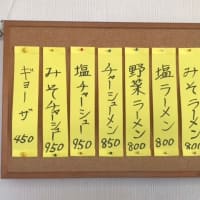 みそラーメン 800
塩ラーメン 800
野菜ラーメン 800
チャーシューメン 850
塩チャーシュー 950
みそチャーシュー 950
ギョーザ 450